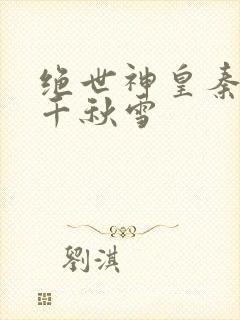 绝世神皇秦
千秋雪
劉淇